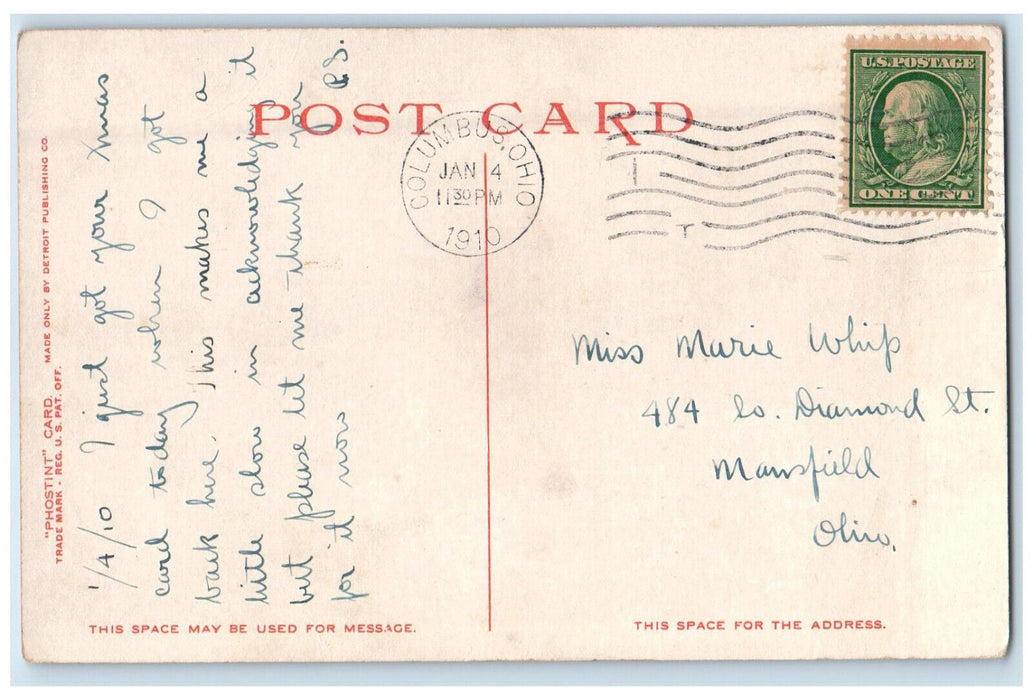 POST CARD
COLUMBUS, OHIO
JAN 4
11 30 PM
1910
U.S. POSTAGE
ONE CENT
"PHOSTINT" CARD. MADE ONLY BY DETROIT PUBLISHING CO.
TRADE MARK - REG. U. S. PAT. OFF.
1/4/10 I just got your xmas
card today when I got
back here. This makes me a
little slow in acknowledging it
but please let me thank you
for it now
Miss Marie Whip
484 So. Diamond St.
Mansfield
Ohio.
THIS SPACE MAY BE USED FOR MESSAGE.
THIS SPACE FOR THE ADDRESS.